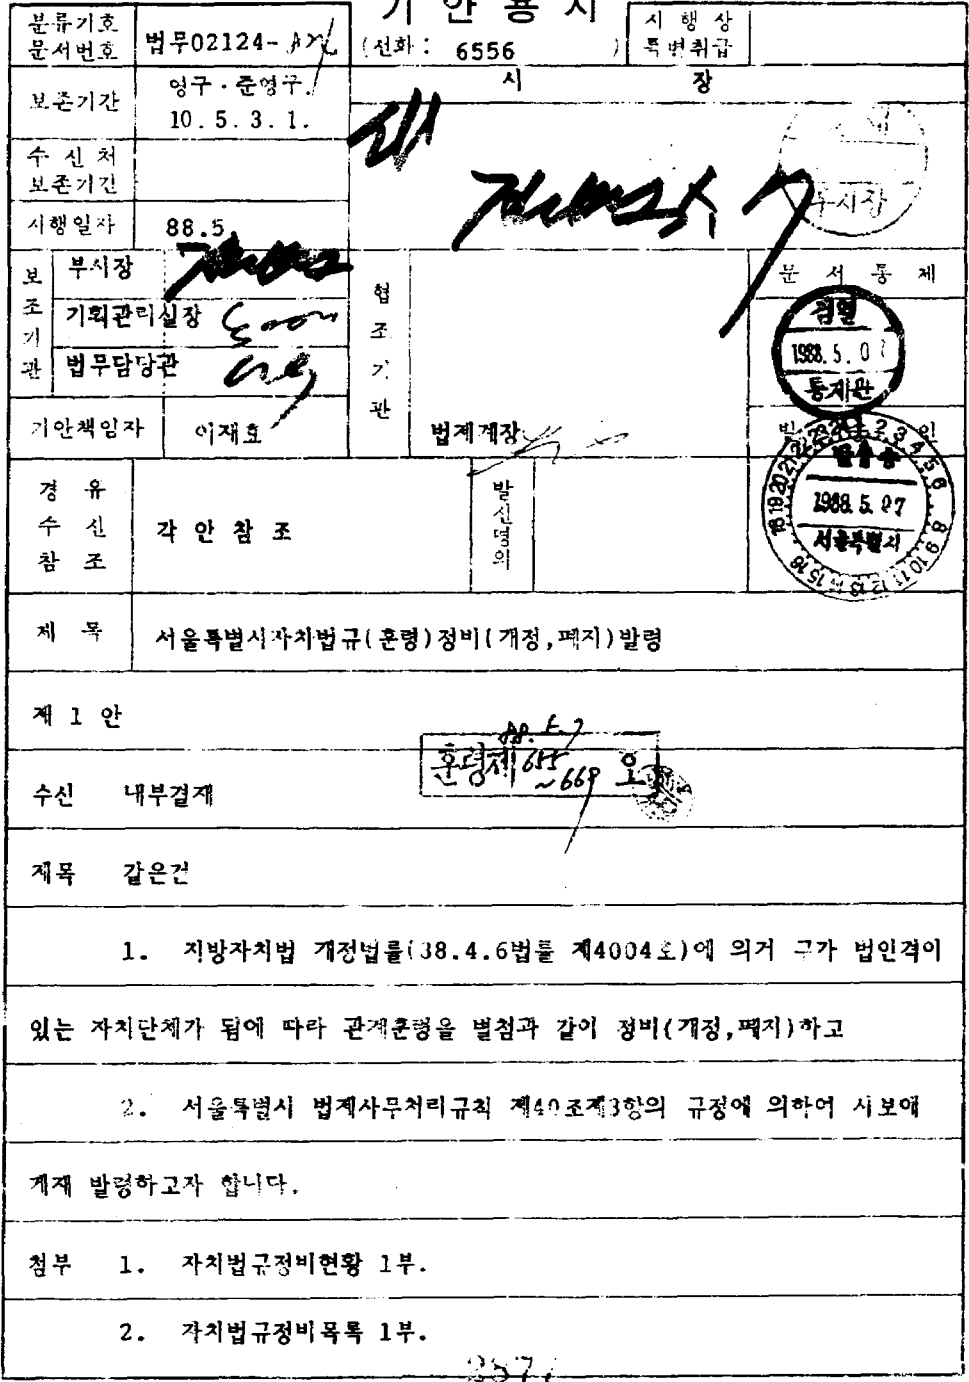 기 안 용 지
분류기호
문서번호
법무02124-
(전화 : 6556 )
시 행 상
특별취급
보존기간
영구 · 준영구.
10. 5. 3. 1.
시 장
수 신 처
보존기간
시행일자
88.5.
부시장
보조기관
부시장
기획관리실장
법무담당관
협조기관
문 서 통 제
검열
1988. 5. 0
통제관
기안책임자
이재호
법제계장
발 인
경 유
수 신
참 조
각 안 참 조
발신명의
발송
1988. 5. 07
서울특별시
제 목
서울특별시자치법규(훈령)정비(개정,폐지)발령
제 1 안
88. 5. 7
훈령제 655 ~669 호
수신 내부결재
제목 같은건
1. 지방자치법 개정법률(88.4.6법률 제4004호)에 의거 구가 법인격이
있는 자치단체가 됨에 따라 관계훈령을 별첨과 같이 정비(개정,폐지)하고
2. 서울특별시 법제사무처리규칙 제40조제3항의 규정에 의하여 시보에
게재 발령하고자 합니다.
첨부 1. 자치법규정비현황 1부.
2. 자치법규정비목록 1부.